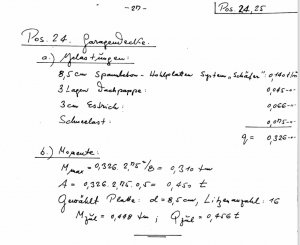 - 27 -
Pos. 24, 25
Pos. 24. Garagendecke.
a.) Belastungen:
8,5 cm Spannbeton-Hohlplatten System "Schäfer": 0,140 t/m
3 Lagen Dachpappe: 0,045 -"-
3cm Estrich: 0,066 -"-
Schneelast: 0,075 -"-
q = 0,326 -"-
b.) Momente:
M max = 0,326 . 2,75²/8 = 0,310 tm
A = 0,326 . 2,75 . 0,5 = 0,450 t
Gewählt Platte: d = 8,5cm, Litzenanzahl: 16
M zul = 0,498 tm ; Q zul = 0,456 t